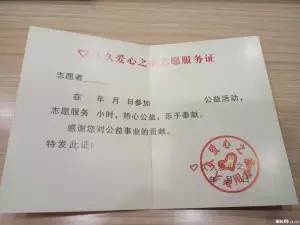 久爱心之 志愿服务证
志愿者
在 年 月 日参加 公益活动,
志愿服务 小时,热心公益,乐于奉献。
感谢您对公益事业的贡献。
特发此证!
久爱心之
年 月 日